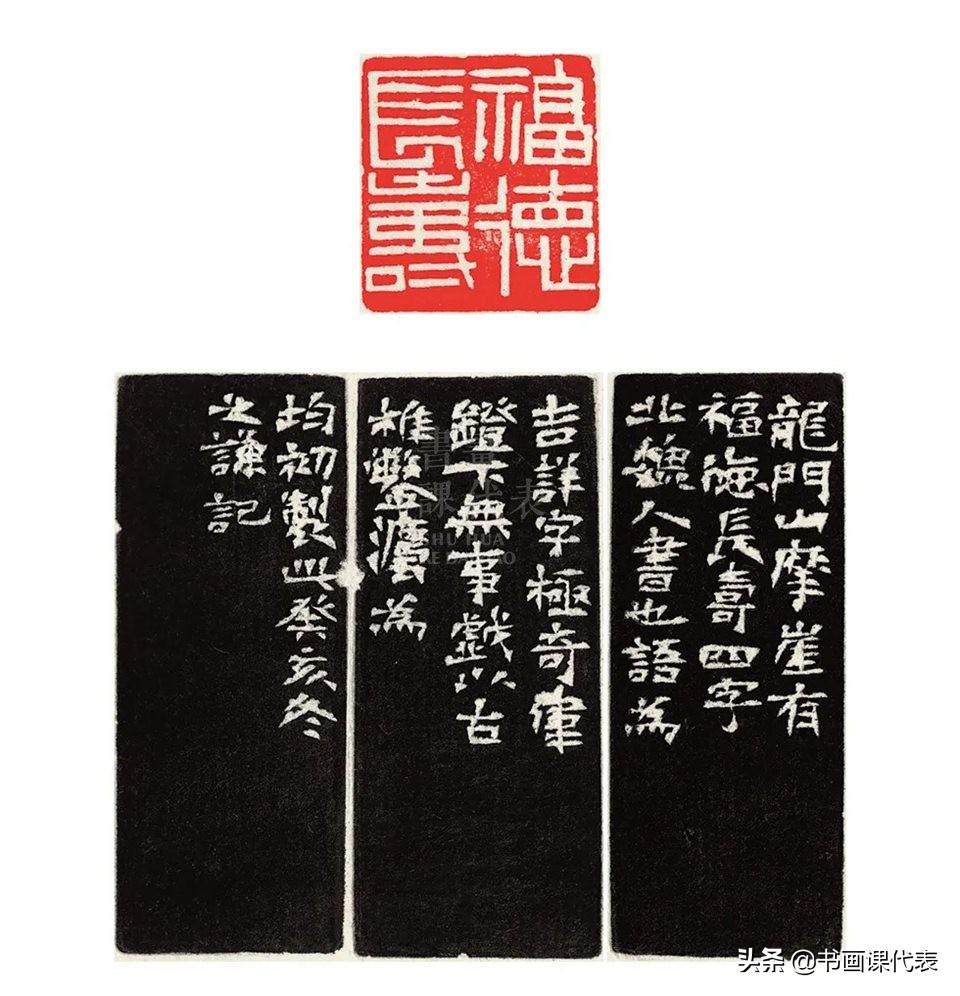 福德
長壽
龍門山摩崖有
福德長壽四字
北魏人書也語爲
吉詳字極奇偉
鐙下無事戲以古
椎鑿灋爲
均初製此癸亥冬
之謙記
头条 @书画课代表